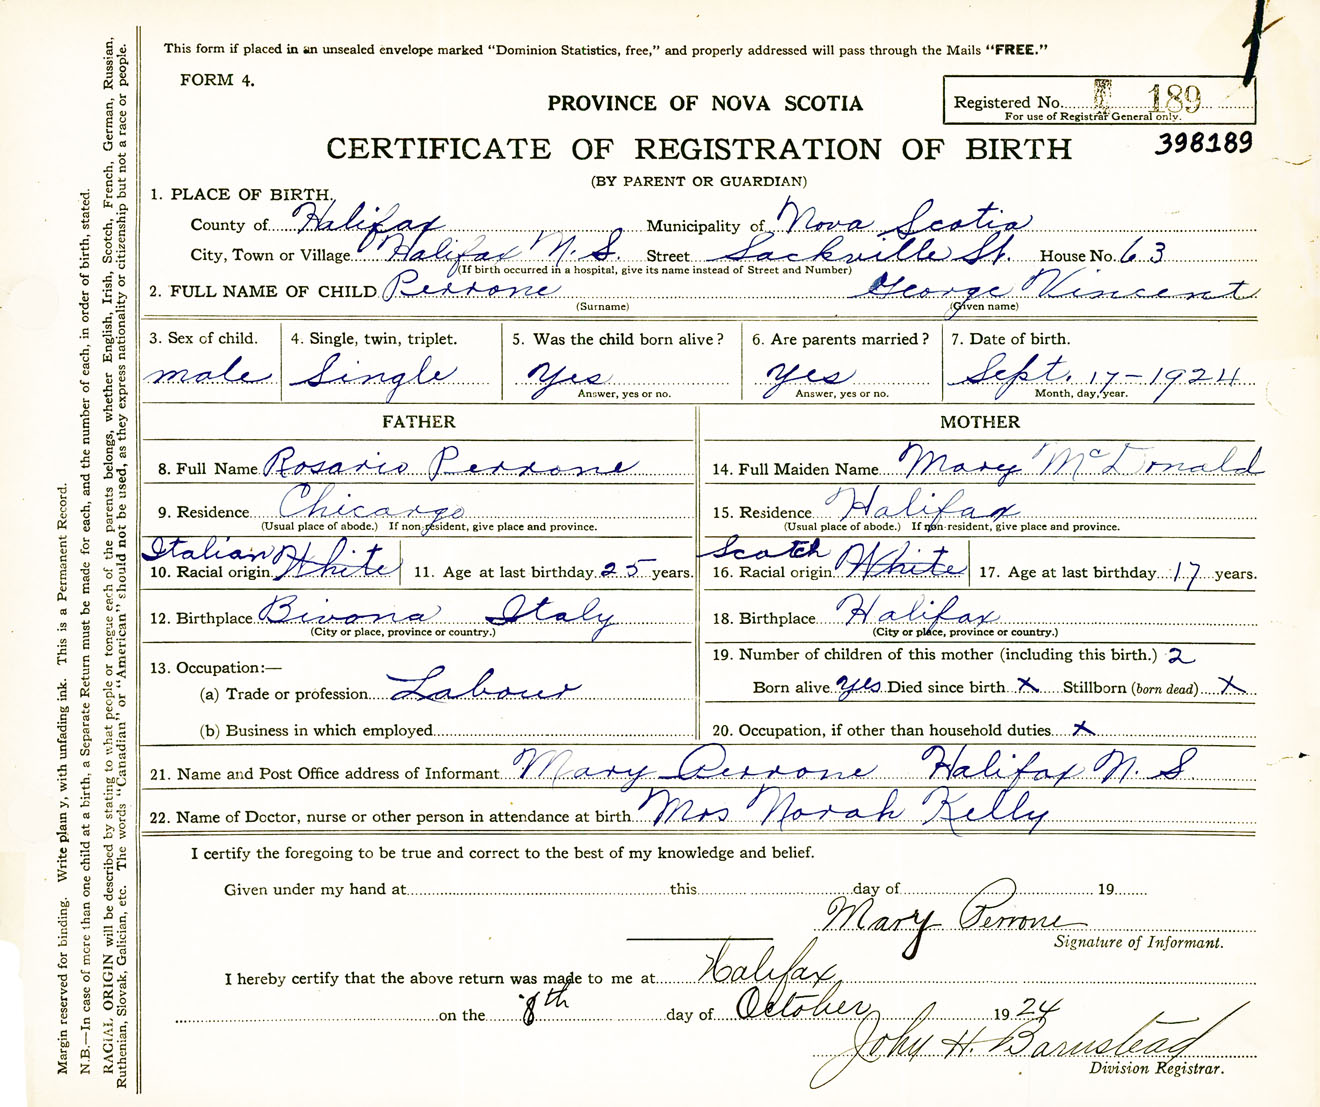 This form if placed in an unsealed envelope marked "Dominion Statistics, free," and properly addressed will pass through the Mails "FREE."
FORM 4.
PROVINCE OF NOVA SCOTIA
Registered No. 189
For use of Registrar General only.
398189
CERTIFICATE OF REGISTRATION OF BIRTH
(BY PARENT OR GUARDIAN)
1. PLACE OF BIRTH.
County of Halifax Municipality of Nova Scotia
City, Town or Village Halifax N. S. Street Sackville St. House No. 63
(If birth occurred in a hospital, give its name instead of Street and Number)
2. FULL NAME OF CHILD Perrone George Vincent
(Surname) (Given name)
3. Sex of child. 4. Single, twin, triplet. 5. Was the child born alive? 6. Are parents married? 7. Date of birth.
male Single Yes Yes Sept. 17-1924
Answer, yes or no. Answer, yes or no. Month, day, year.
FATHER MOTHER
8. Full Name Rosario Perrone 14. Full Maiden Name Mary McDonald
9. Residence Chicargo 15. Residence Halifax
(Usual place of abode.) If non-resident, give place and province. (Usual place of abode.) If non-resident, give place and province.
Italian Scotch
10. Racial origin White 11. Age at last birthday 25 years. 16. Racial origin White 17. Age at last birthday 17 years.
12. Birthplace Bivona Italy 18. Birthplace Halifax
(City or place, province or country.) (City or place, province or country.)
13. Occupation:— 19. Number of children of this mother (including this birth.) 2
(a) Trade or profession Labour Born alive yes Died since birth X Stillborn (born dead) X
(b) Business in which employed 20. Occupation, if other than household duties X
21. Name and Post Office address of Informant Mary Perrone Halifax N. S.
22. Name of Doctor, nurse or other person in attendance at birth Mrs Norah Kelly
I certify the foregoing to be true and correct to the best of my knowledge and belief.
Given under my hand at this day of 19
Mary Perrone
Signature of Informant.
I hereby certify that the above return was made to me at Halifax
on the 8th day of October 1924
John H. Barnstead
Division Registrar.
Margin reserved for binding. Write plainly, with unfading ink. This is a Permanent Record.
N.B.—In case of more than one child at a birth, a Separate Return must be made for each, and the number of each, in order of birth, stated.
RACIAL ORIGIN will be described by stating to what people or tongue each of the parents belongs, whether English, Irish, Scotch, French, German, Russian,
Ruthenian, Slovak, Galician, etc. The words "Canadian" or "American" should not be used, as they express nationality or citizenship but not a race or people.